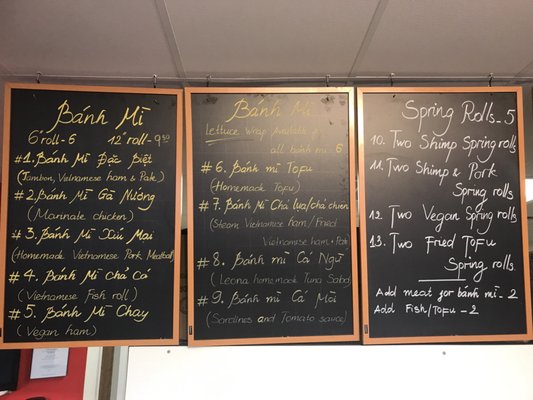 Bánh Mì
6" roll - 6 12" roll - 9 50
#1. Bánh Mì Đặc Biệt
(Jambon, Vietnamese ham & Pate)
#2. Bánh Mì Gà Nướng
(Marinate chicken)
#3. Bánh Mì Xíu Mại
(Homemade Vietnamese Pork Meatball)
#4. Bánh Mì Chả Cá
(Vietnamese Fish roll)
#5. Bánh Mì Chay
(Vegan ham)
Bánh Mì
Lettuce Wrap Available for
all bánh mì - 6
#6. Bánh mì Tofu
(Homemade Tofu)
#7. Bánh Mì Chả Lụa/chả chiên
(Steam Vietnamese ham/Fried
Vietnamese ham - Pork)
#8. Bánh mì Cá Ngừ
(Leona homemade Tuna Salad)
#9. Bánh mì Cá Mòi
(Sardines and Tomato sauce)
Spring Rolls - 5
10. Two Shimp Spring rolls
11. Two Shimp & Pork
Spring rolls
12. Two Vegan Spring rolls
13. Two Fried Tofu
Spring rolls.
Add meat for bánh mì - 2
Add Fish/Tofu - 2